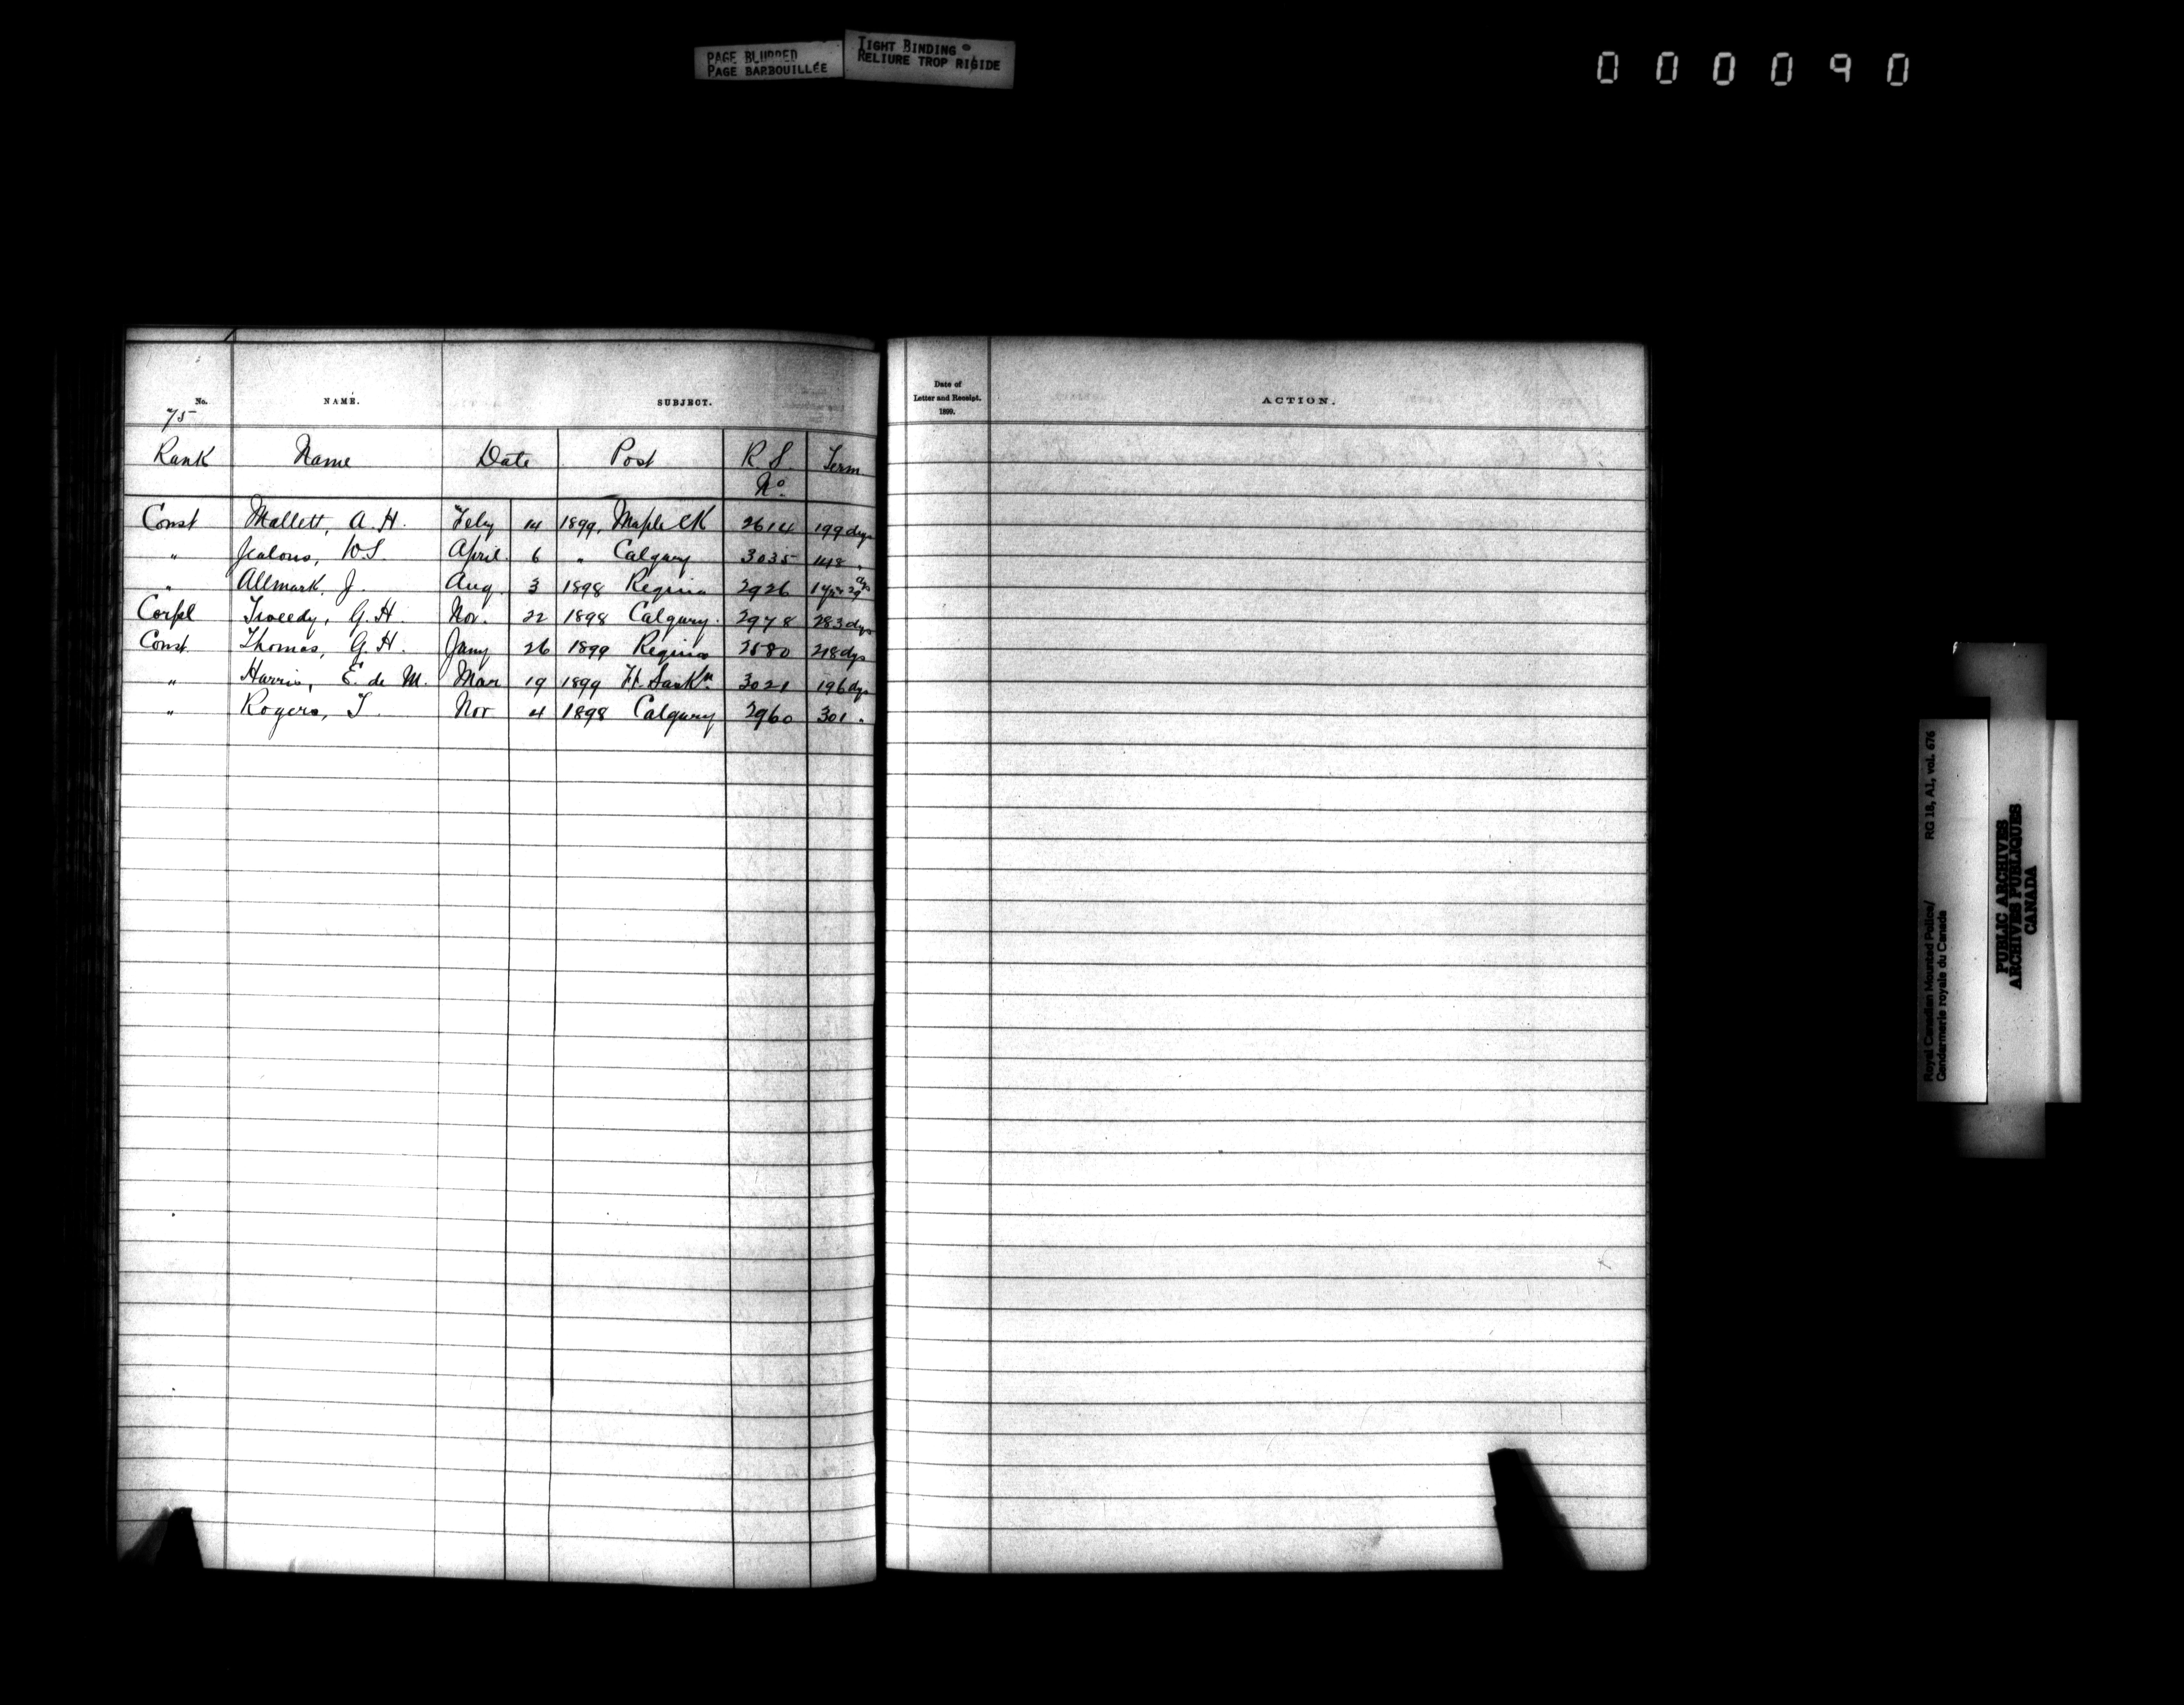 PAGE BLURRED
PAGE BARBOUILLÉE
TIGHT BINDING
RELIURE TROP RIGIDE
000090
No. NAME. SUBJECT.
75
Rank Name Date Post R.S. No. Term
Const Mallett, A.H. Feby 14 1899, Maple CK 2614 199 dys
" Jealous, W S. April 6 " Calgary 3035 148 "
" Allmark, J. Aug. 3 1898 Regina 2926 1 yr 29 dys
Corpl Tweedy, G.H. Nov. 22 1898 Calgary. 2978 283 dys
Const. Thomas, G.H. Jany 26 1899 Regina 2580 218 dys
" Harris, E. de M. Mar 19 1899 Ft. Sask n. 3021 196 dys
" Rogers, T. Nov 4 1898 Calgary 2960 301 "
Date of
Letter and Receipt.
1899.
ACTION.
Royal Canadian Mounted Police/ RG 18, A1, vol. 676
Gendarmerie royale du Canada
PUBLIC ARCHIVES
ARCHIVES PUBLIQUES
CANADA